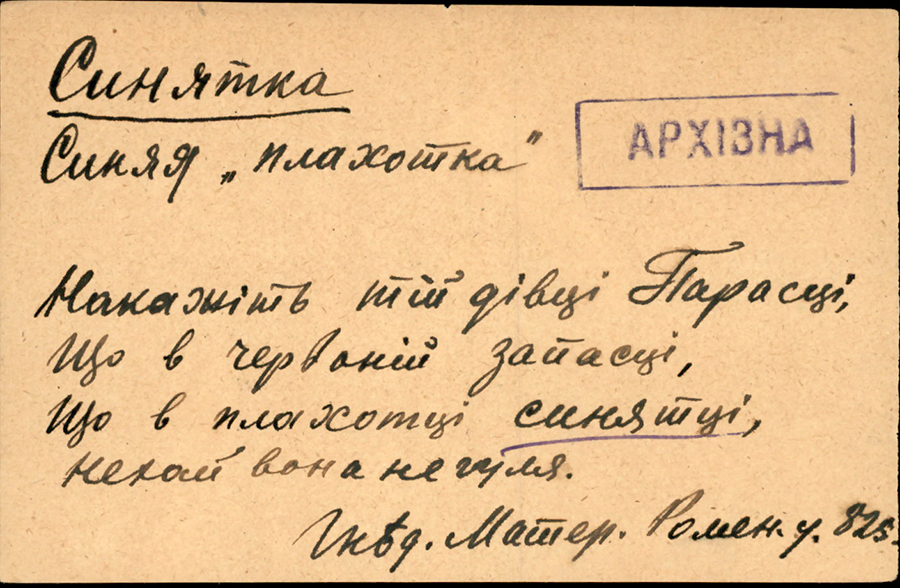 Синятка
Синяя „плахотка"
АРХІЗНА
Накажіть тій дівці Парасці,
Що в червоній запасці,
Що в плахотці синятці,
нехай вона не гуля.
Гнѣд. Матер. Ромен. у. 82s.